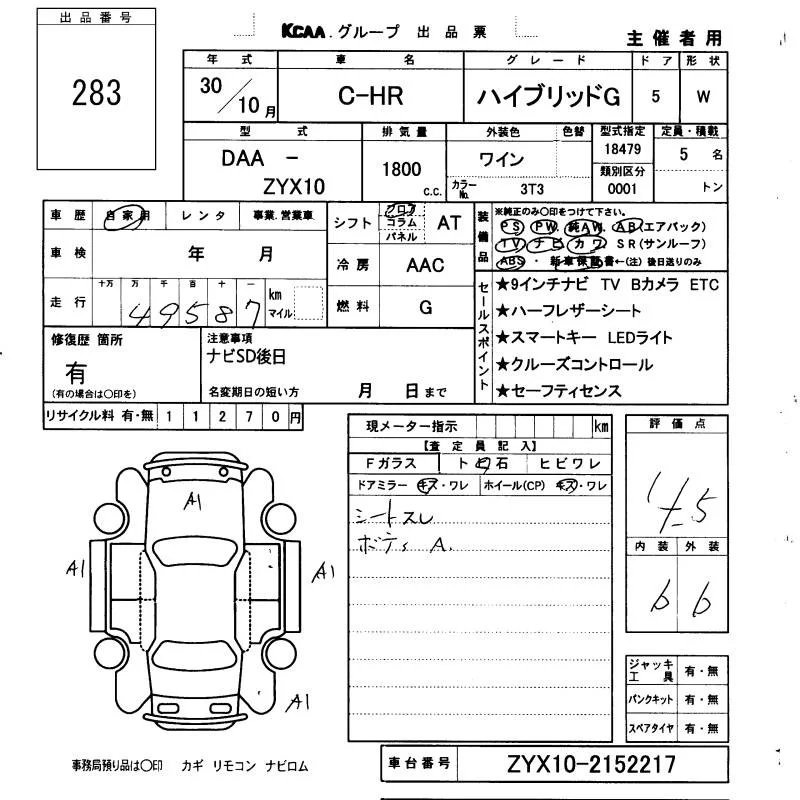 出品番号
283
KCAA.グループ 出品票
主催者用
年式 車名 グレード ドア 形状
30/10月 C-HR ハイブリッドG 5 W
型式 排気量 外装色 色替 型式指定 定員・積載
DAA - ZYX10 1800 c.c. ワイン 18479 5名
カラーNo. 3T3 類別区分 0001 トン
車歴 自家用 レンタ 事業.営業車
シフト フロア コラム パネル AT
車検 年 月
冷房 AAC
走行 十万 万 千 百 十 一
49587 km マイル
燃料 G
装備品 ※純正のみ○印をつけて下さい。
PS PW 純AW. AB(エアバック)
TV ナビ カワ SR(サンルーフ)
ABS・新車保証書←(注)後日送りのみ
セールスポイント
★9インチナビ TV Bカメラ ETC
★ハーフレザーシート
★スマートキー LEDライト
★クルーズコントロール
★セーフティセンス
修復歴 箇所
有
(有の場合は○印を)
注意事項
ナビSD後日
名変期日の短い方 月 日まで
リサイクル料 有・無 11270円
現メーター指示 km
【査定員記入】
Fガラス ト石 ヒビワレ
ドアミラー キズ・ワレ ホイール(CP) キズ・ワレ
シートスレ
ボディ A.
評価点
4.5
内装 外装
b b
A1
A1
A1
A1
ジャッキ工具 有・無
パンクキット 有・無
スペアタイヤ 有・無
事務局預り品は○印 カギ リモコン ナビロム
車台番号 ZYX10-2152217